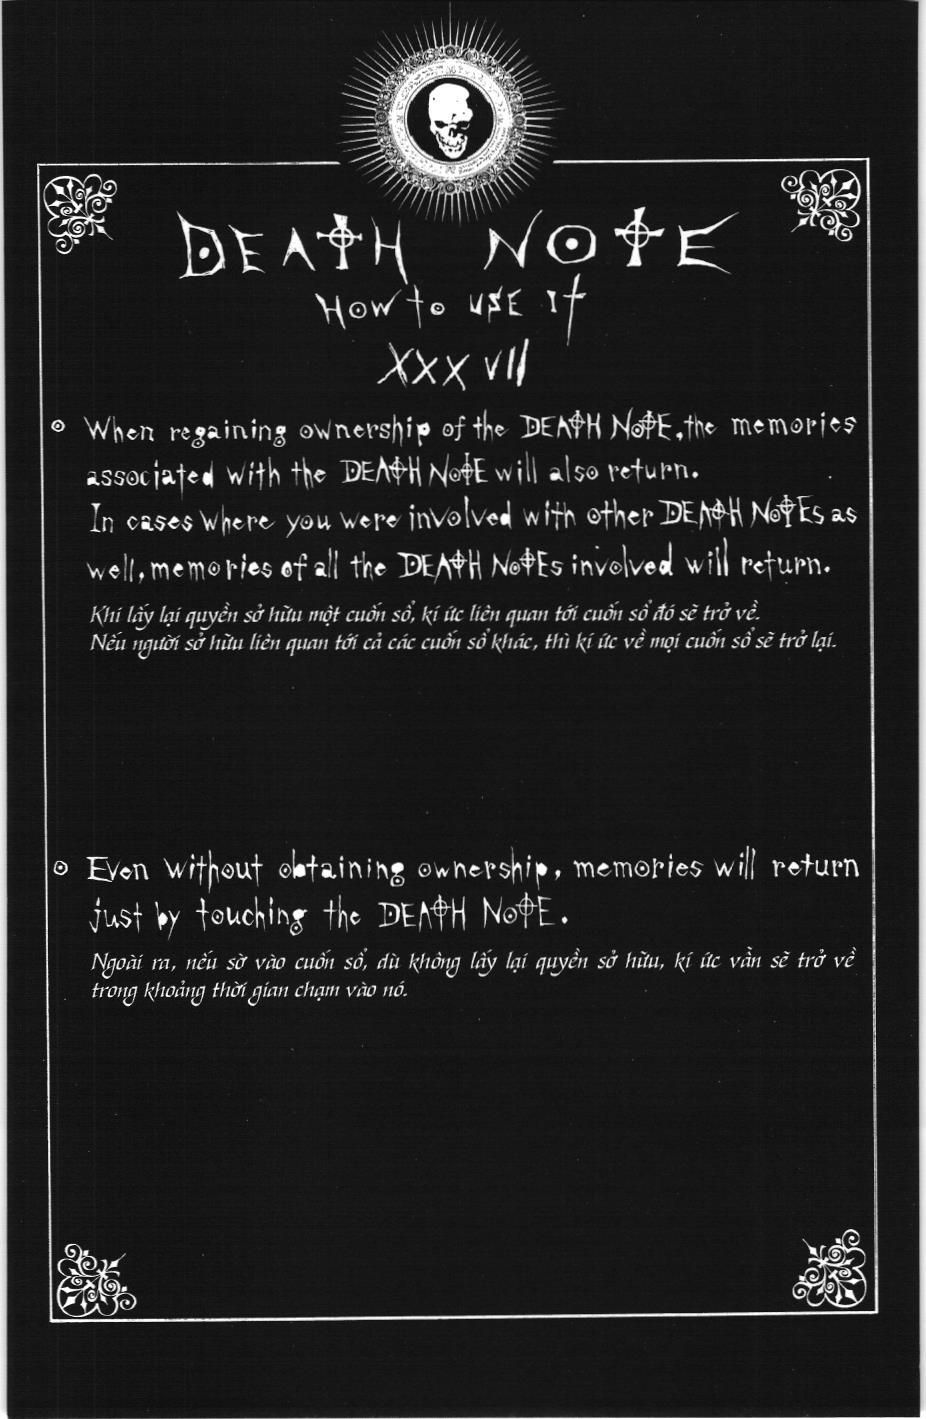 DEATH NOTE
How to use it
XXXVII
When regaining ownership of the DEATH NOTE, the memories
associated with the DEATH NOTE will also return.
In cases where you were involved with other DEATH NOTEs as
well, memories of all the DEATH NOTEs involved will return.
Khi lấy lại quyền sở hữu một cuốn sổ, kí ức liên quan tới cuốn sổ đó sẽ trở về.
Nếu người sở hữu liên quan tới cả các cuốn sổ khác, thì kí ức về mọi cuốn sổ sẽ trở lại.
Even without obtaining ownership, memories will return
just by touching the DEATH NOTE.
Ngoài ra, nếu sờ vào cuốn sổ, dù không lấy lại quyền sở hữu, kí ức vẫn sẽ trở về
trong khoảng thời gian chạm vào nó.